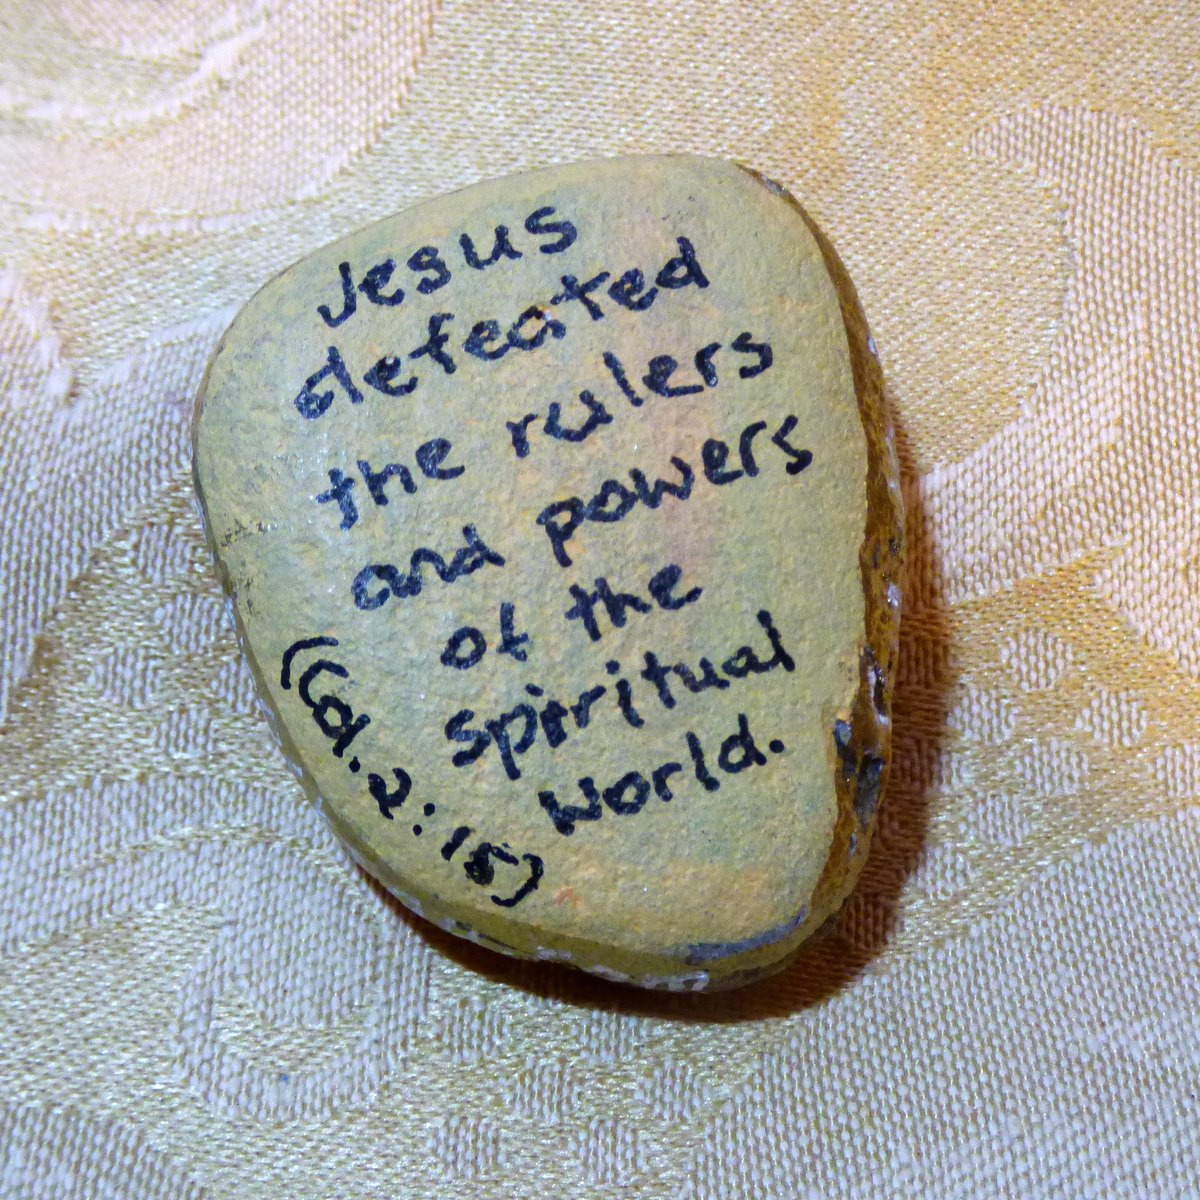 Jesus
defeated
the rulers
and powers
of the
spiritual
world.
(Col. 2:15)